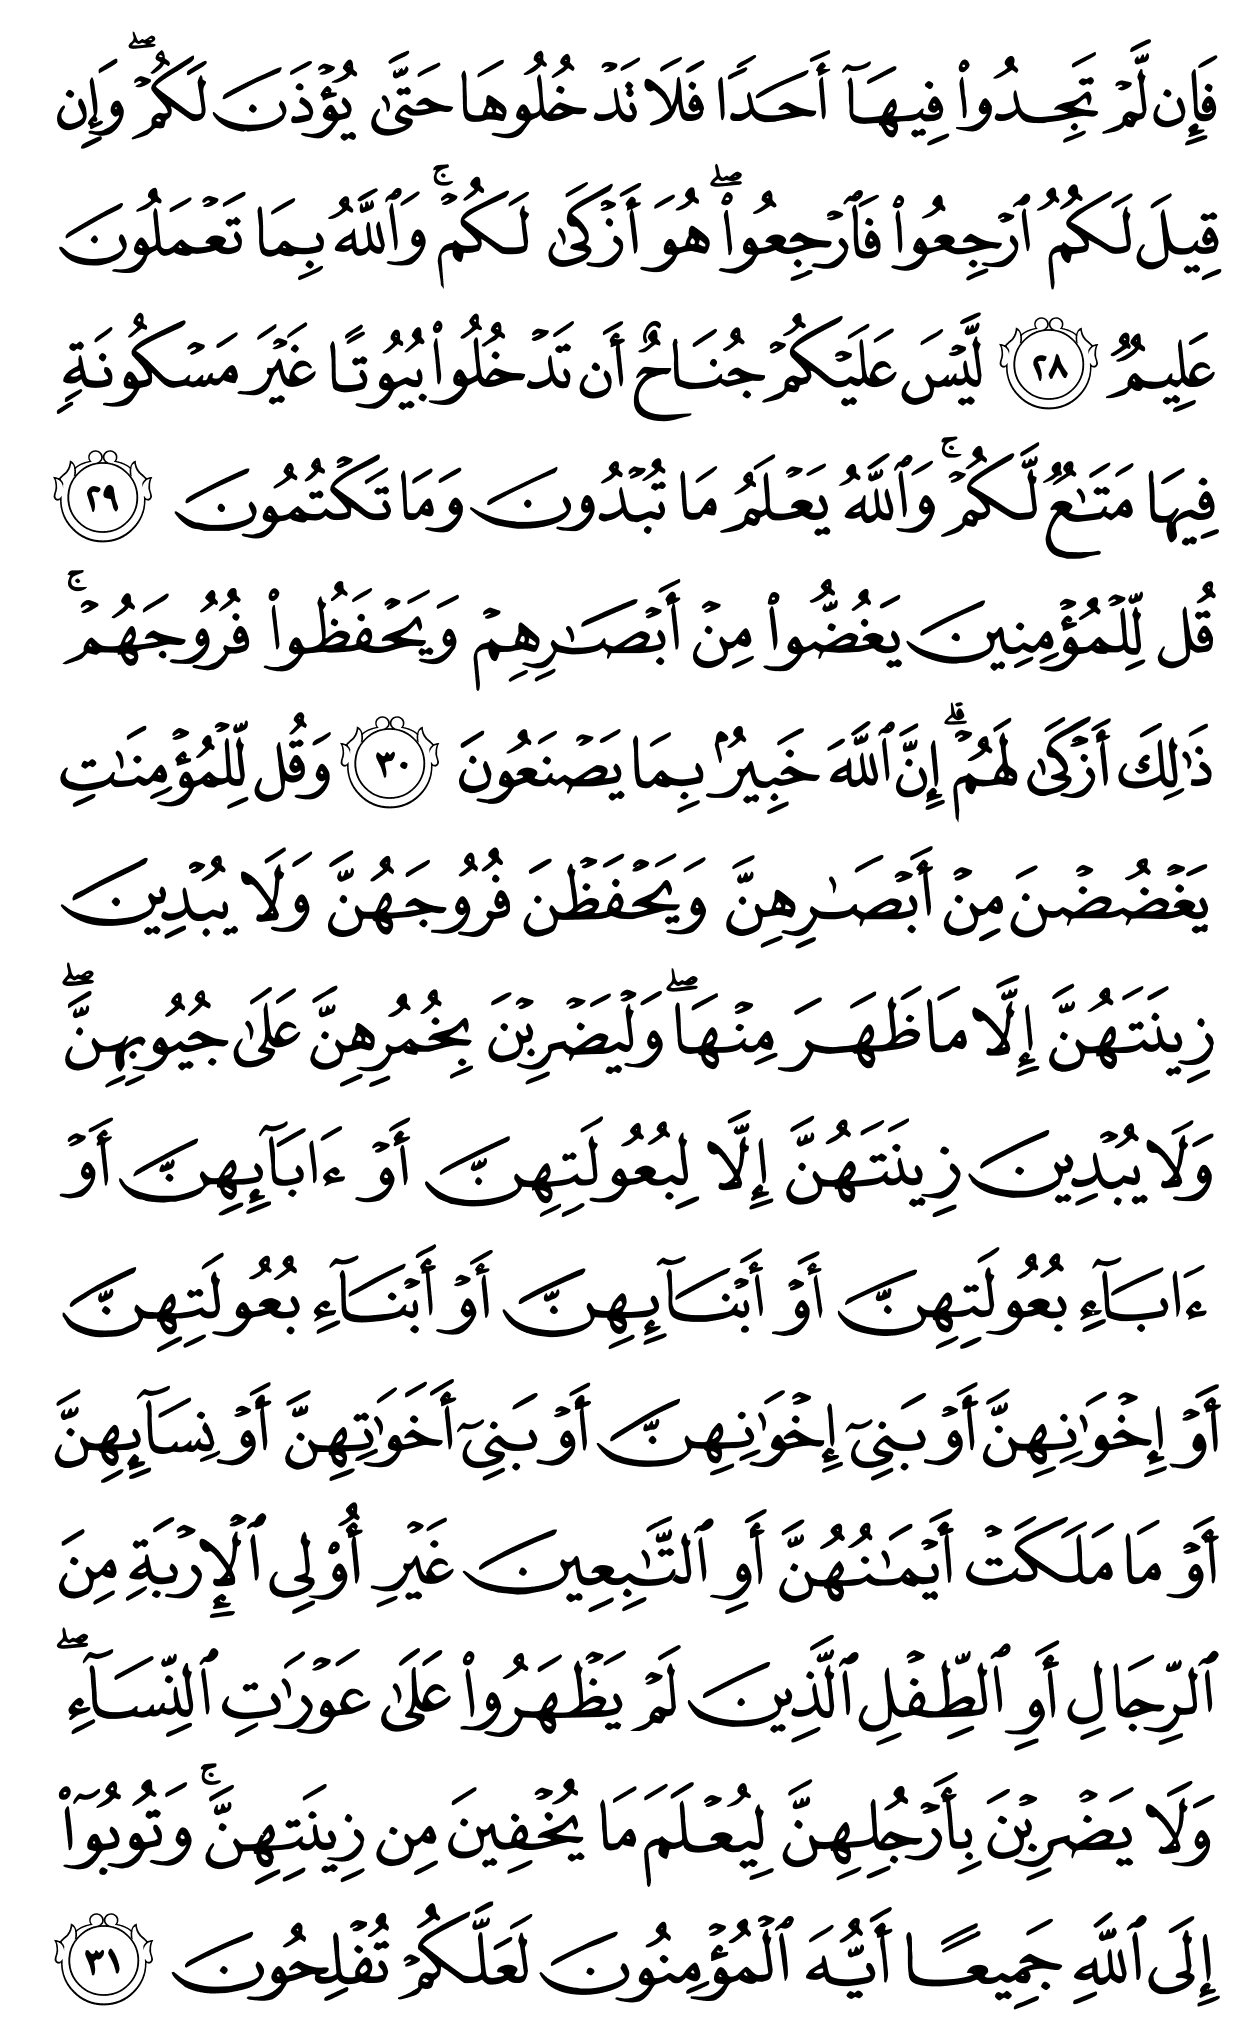 فَإِن لَّمْ تَجِدُوا۟ فِيهَآ أَحَدًا فَلَا تَدْخُلُوهَا حَتَّىٰ يُؤْذَنَ لَكُمْ ۖ وَإِن
قِيلَ لَكُمُ ٱرْجِعُوا۟ فَٱرْجِعُوا۟ ۖ هُوَ أَزْكَىٰ لَكُمْ ۚ وَٱللَّهُ بِمَا تَعْمَلُونَ
عَلِيمٌ ٢٨ لَّيْسَ عَلَيْكُمْ جُنَاحٌ أَن تَدْخُلُوا۟ بُيُوتًا غَيْرَ مَسْكُونَةٍ
فِيهَا مَتَـٰعٌ لَّكُمْ ۚ وَٱللَّهُ يَعْلَمُ مَا تُبْدُونَ وَمَا تَكْتُمُونَ ٢٩
قُل لِّلْمُؤْمِنِينَ يَغُضُّوا۟ مِنْ أَبْصَـٰرِهِمْ وَيَحْفَظُوا۟ فُرُوجَهُمْ ۚ
ذَٰلِكَ أَزْكَىٰ لَهُمْ ۗ إِنَّ ٱللَّهَ خَبِيرٌۢ بِمَا يَصْنَعُونَ ٣٠ وَقُل لِّلْمُؤْمِنَـٰتِ
يَغْضُضْنَ مِنْ أَبْصَـٰرِهِنَّ وَيَحْفَظْنَ فُرُوجَهُنَّ وَلَا يُبْدِينَ
زِينَتَهُنَّ إِلَّا مَا ظَهَرَ مِنْهَا ۖ وَلْيَضْرِبْنَ بِخُمُرِهِنَّ عَلَىٰ جُيُوبِهِنَّ ۖ
وَلَا يُبْدِينَ زِينَتَهُنَّ إِلَّا لِبُعُولَتِهِنَّ أَوْ ءَابَآئِهِنَّ أَوْ
ءَابَآءِ بُعُولَتِهِنَّ أَوْ أَبْنَآئِهِنَّ أَوْ أَبْنَآءِ بُعُولَتِهِنَّ
أَوْ إِخْوَٰنِهِنَّ أَوْ بَنِىٓ إِخْوَٰنِهِنَّ أَوْ بَنِىٓ أَخَوَٰتِهِنَّ أَوْ نِسَآئِهِنَّ
أَوْ مَا مَلَكَتْ أَيْمَـٰنُهُنَّ أَوِ ٱلتَّـٰبِعِينَ غَيْرِ أُو۟لِى ٱلْإِرْبَةِ مِنَ
ٱلرِّجَالِ أَوِ ٱلطِّفْلِ ٱلَّذِينَ لَمْ يَظْهَرُوا۟ عَلَىٰ عَوْرَٰتِ ٱلنِّسَآءِ ۖ
وَلَا يَضْرِبْنَ بِأَرْجُلِهِنَّ لِيُعْلَمَ مَا يُخْفِينَ مِن زِينَتِهِنَّ ۚ وَتُوبُوٓا۟
إِلَى ٱللَّهِ جَمِيعًا أَيُّهَ ٱلْمُؤْمِنُونَ لَعَلَّكُمْ تُفْلِحُونَ ٣١